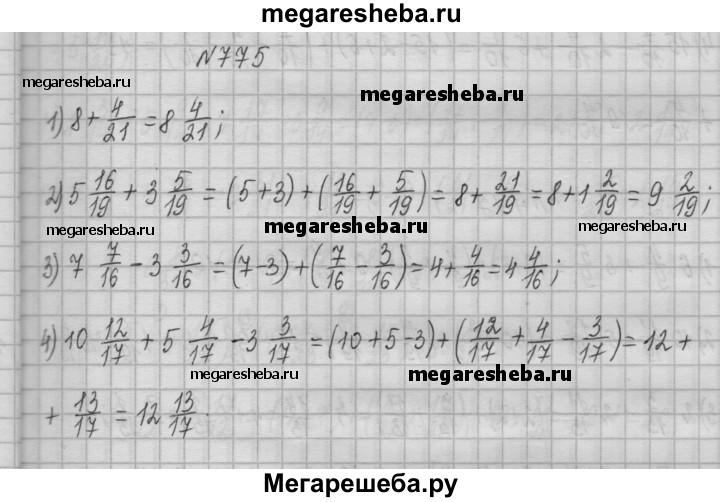 megaresheba.ru
№775
megaresheba.ru
megaresheba.ru
1) 8 + 4/21 = 8 4/21;
2) 5 16/19 + 3 5/19 = (5+3) + (16/19 + 5/19) = 8 + 21/19 = 8 + 1 2/19 = 9 2/19;
megaresheba.ru
megaresheba.ru
megaresheba.ru
3) 7 7/16 - 3 3/16 = (7-3) + (7/16 - 3/16) = 4 + 4/16 = 4 4/16;
4) 10 12/17 + 5 4/17 - 3 3/17 = (10+5-3) + (12/17 + 4/17 - 3/17) = 12 +
megaresheba.ru
megaresheba.ru
+ 13/17 = 12 13/17.
Мегарешеба.ру